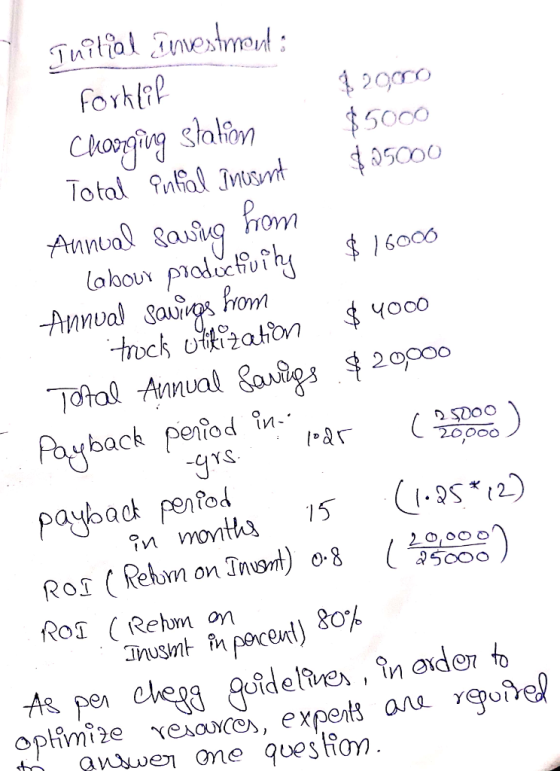 Initial Investment :
Forklif $ 20,000
Charging station $5000
Total intial Invsmt $25000
Annual saving from
labour productivity $ 16000
Annual savings from
truck utilization $ 4000
Total Annual Savings $ 20,000
Payback period in-
-yrs. 1.25 (25000/20,000)
payback period
in months 15 (1.25*12)
ROI (Return on Invsmt) 0.8 (20,000/25000)
ROI (Return on
Invsmt in percent) 80%
As per chegg guidelines, in order to
optimize resources, experts are required
to answer one question.